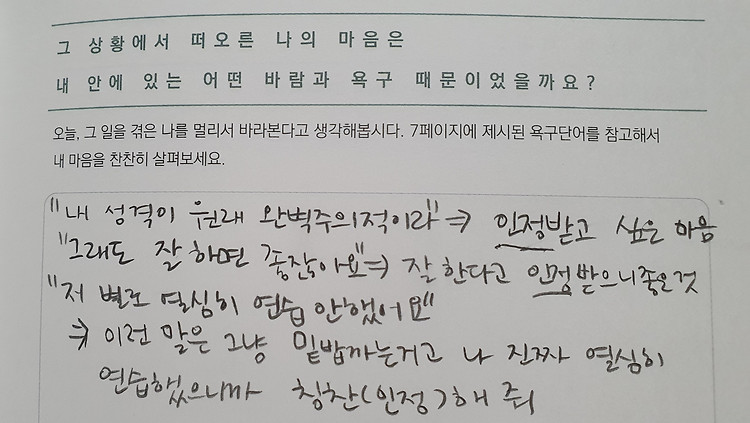 그 상황에서 떠오른 나의 마음은
내 안에 있는 어떤 바람과 욕구 때문이었을까요?
오늘, 그 일을 겪은 나를 멀리서 바라본다고 생각해봅시다. 7페이지에 제시된 욕구단어를 참고해서
내 마음을 찬찬히 살펴보세요.
"내 성격이 원래 완벽주의적이라" ⇒ 인정받고 싶은 마음
"그래도 잘하면 좋잖아요" ⇒ 잘한다고 인정받으니 좋은 것
"저 별로 열심히 연습 안했어요"
⇒ 이런 말은 그냥 밑밥까는거고 나 진짜 열심히
연습했으니까 칭찬(인정)해 줘